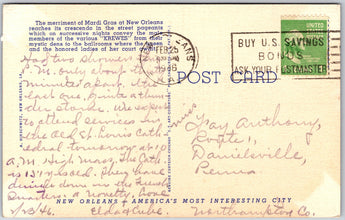 The merriment of Mardi Gras at New Orleans
reaches its crescendo in the street pageants
which on successive nights convey the
members of the various "KREWES" from their
mystic dens to the ballrooms where the queen
and the honored ladies of her court
Had two showers this
P. M. only about
minutes apart. The
last one
der storm. We expect
to attend services in
the old St. Louis Cath-
edral tomorrow at 10
A. M. High Mass. The Cath.
is
dinner down in the French
Quarters a novelty, love
2/23/46.
ORLEANS
FEB 25
1946
BUY U.S. SAVINGS
BONDS
ASK YOUR POSTMASTER
POST CARD
Miss
Fay Anthony,
Route 1,
Danielsville,
Penna
Northampton Co.
NEW ORLEANS - AMERICA'S MOST INTERESTING CITY